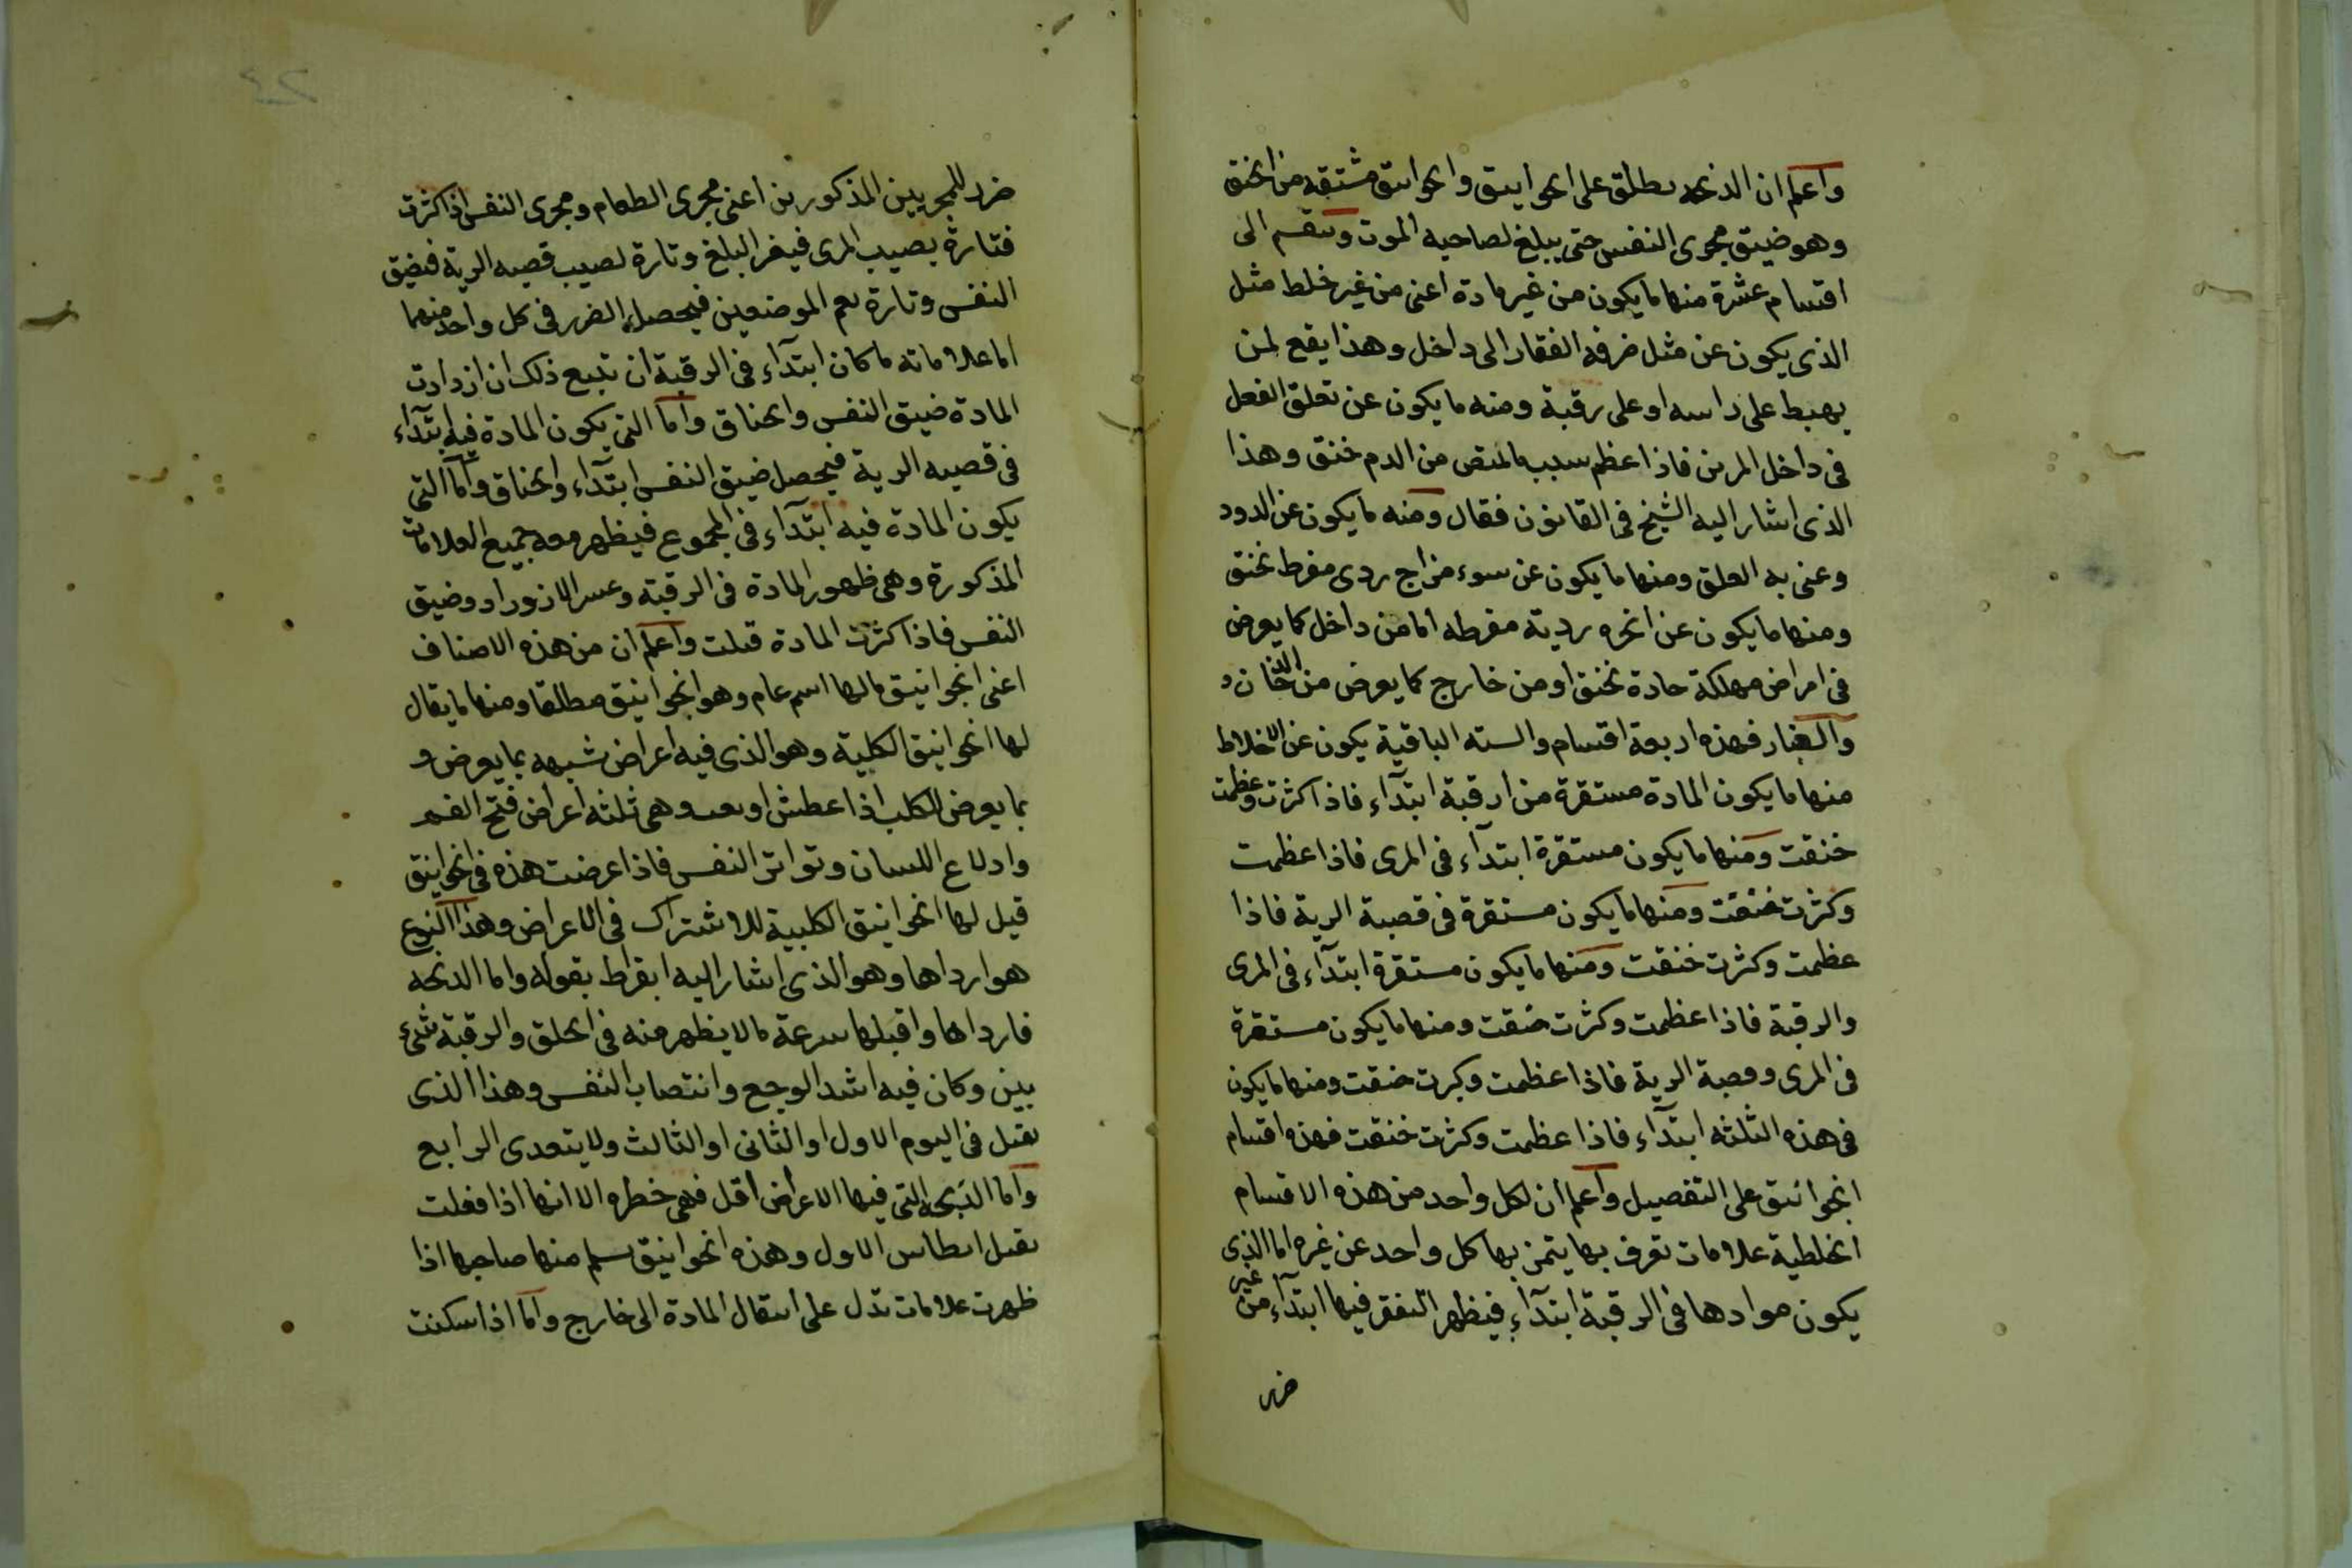 واعلم ان الذبحه يطلق على الخوانيق والخوانيق مشتقه من الخنق
وهو ضيق مجرى النفس حتى يبلغ لصاحبه الموت وينقسم الى
اقسام عشرة منها ما يكون من غير مادة اعنى من غير خلط مثل
الذى يكون عن مثل ضرفه الفقار الى داخل وهذا يقع لمن
يهبط على راسه او على رقبة ومنه ما يكون عن تعلق الفعل
فى داخل المرى فاذا عظم سبب ما لمتص من الدم خنق وهذا
الذى اشار اليه الشيخ فى القانون فقال ومنه ما يكون عن الدود
وعنى به العلق ومنها ما يكون عن سوء مزاج ردى مفرط تخنق
ومنها ما يكون عن ابخره ردية مفرطه اما من داخل كما يعرض
فى امراض مهلكة حادة تخنق او من خارج كما يعرض من الدخان و
والغبار فهذه اربعة اقسام والسته الباقية يكون عن الاخلاط
منها ما يكون المادة مستقرة من ارقبة ابتدآء فاذا كثرت وعظمت
خنقت ومنها ما يكون مستقرة ابتدآء فى المرى فاذا عظمت
وكثرت خنقت ومنها ما يكون مستقرة فى قصبة الرية فاذا
عظمت وكثرت خنقت ومنها ما يكون مستقرة ابتدآء فى المرى
والرقبة فاذا عظمت وكثرت خنقت ومنها ما يكون مستقرة
فى المرى وقصبة الرية فاذا عظمت وكبرت خنقت ومنها ما يكون
فى هذه الثلثه ابتدآء فاذا عظمت وكثرت خنقت فهذه اقسام
الخوانيق على التفصيل واعلم ان لكل واحد من هذه الاقسام
الخلطية علامات تعرف بها يتميز بها كل واحد عن غيره اما الذى
يكون موادها فى الرقبة ابتدآء فيظهر النفقر فيها ابتدآء من غير
ضر
ضرر للمجريين المذكورين اعنى مجرى الطعام ومجرى النفس اذا كثرت
فتارة يصيب المرى فيغر البلغ وتارة لصيب قصبه الرية فيضيق
النفس وتارة يعم الموضعين فيحصل الضرر فى كل واحد منهما
اما علاماته ما كان ابتدآء فى الرقبة ان تتبع ذلك ان ازدادت
المادة ضيق النفس والخناق واما التى يكون المادة فيه ابتدآء
فى قصبه الرية فيحصل ضيق النفس ابتدآء والخناق واما التى
يكون المادة فيه ابتدآء فى المجموع فيظهر معه جميع العلامات
المذكورة وهى ظهور المادة فى الرقبة وعسر الازوراد وضيق
النفس فاذا كثرت المادة قتلت واعلم ان من هذه الاصناف
اعنى الخوانيق ما لها اسم عام وهو الخوانيق مطلقا ومنها ما يقال
لها الخوانيق الكلبية وهو الذى فيه اعراض شبهه بما يعرض و
بما يعرض للكلب اذا عطش او تعب وهى ثلثه اعراض فتح الفم
وادلاع اللسان وتواتر النفس فاذا عرضت هذه فى الخوانيق
قيل لها الخوانيق الكلبية للاشتراك فى الاعراض وهذا النوع
هو ارداها وهو الذى اشار اليه ابقراط بقوله واما الذبحه
فارداها واقبلها سرعة ما لا يظهر منه فى الحلق والرقبة شىء
بين وكان فيه اشد الوجع وانتصاب النفس وهذا الذى
يقتل فى اليوم الاول او الثانى او الثالث ولا يتعدى الرابع
واما الذبحه التى فيها الاعراض اقل فهى خطره الا انها اذا فعلت
يقتل ابطاس الاول وهذه الخوانيق يسلم منها صاحبها اذا
ظهرت علامات تدل على انتقال المادة الى خارج واما اذا سكنت